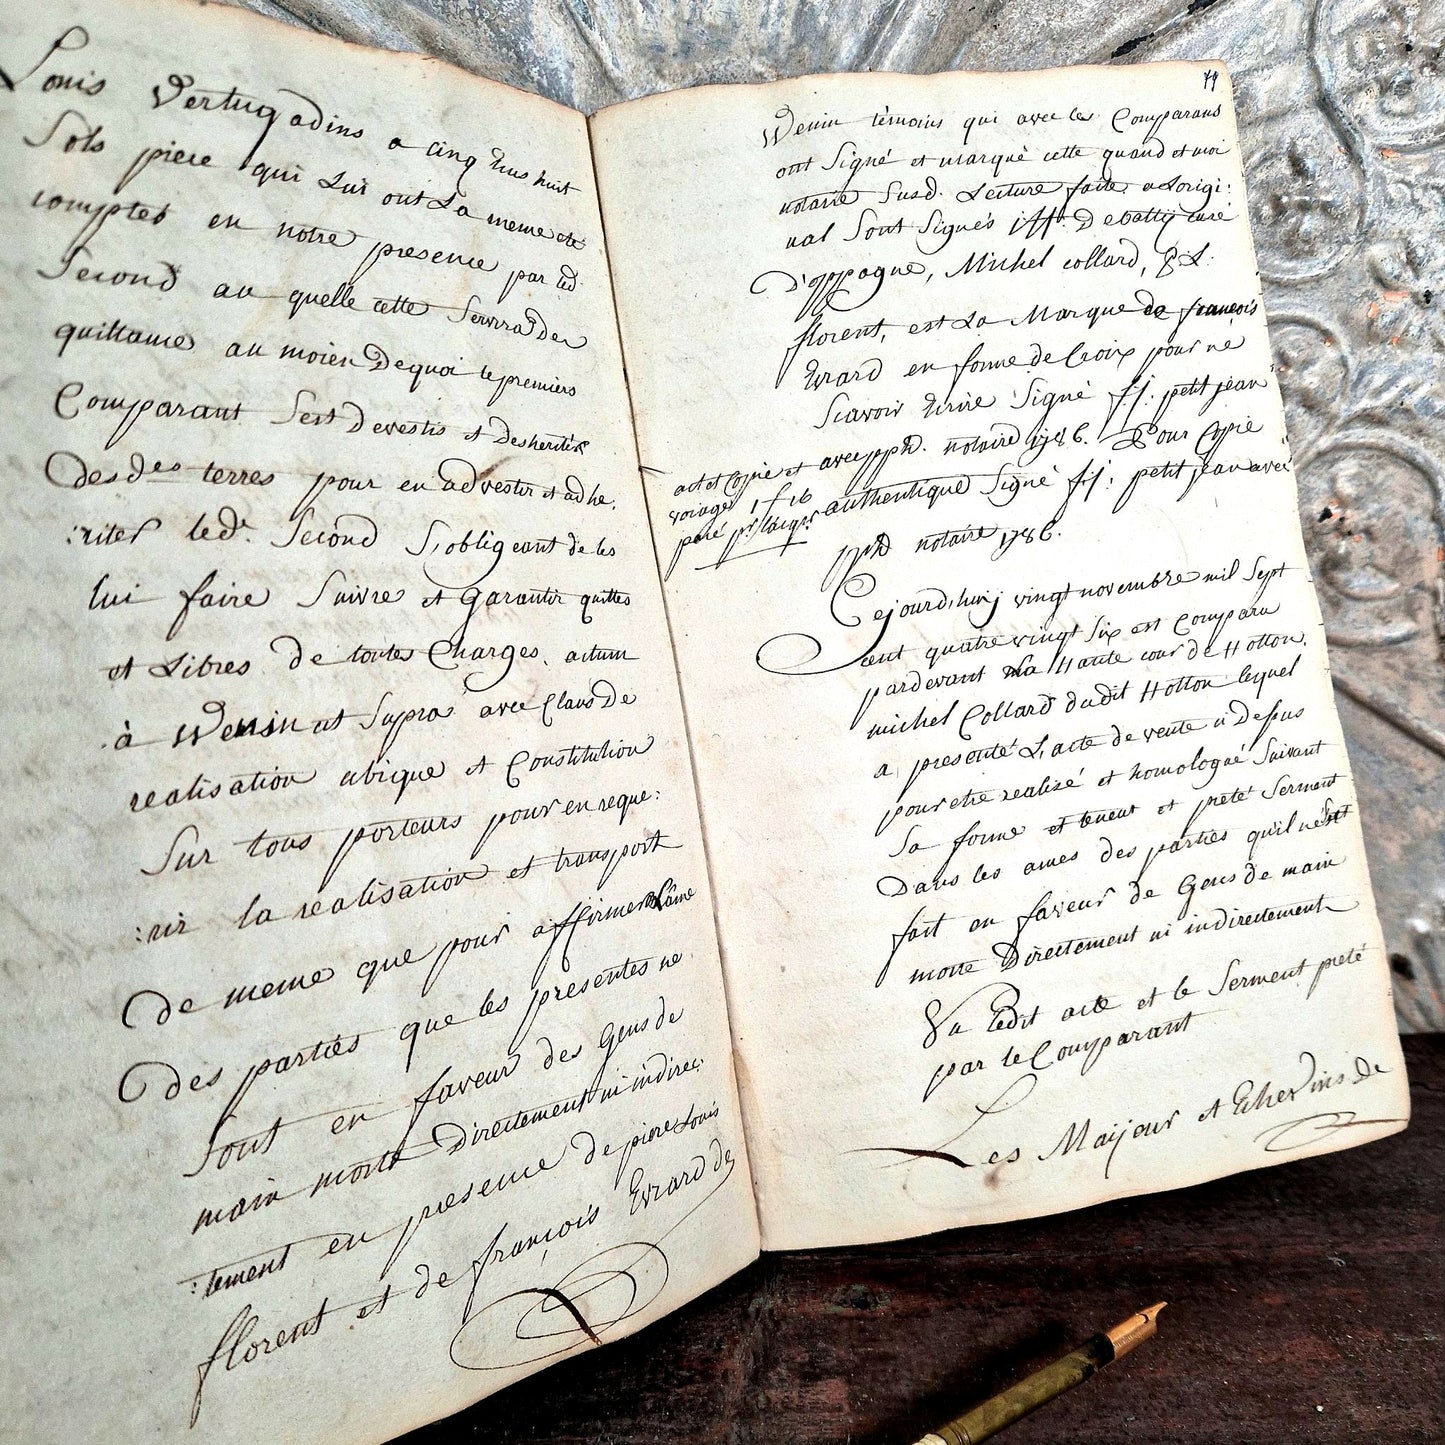 Louis Vertugadins a cinq Ecus huit
Sols piece qui Lui ont La meme eté
comptes en notre presence par led.
Second au quelle cette Servira De
quittance au moien De quoi le premiers
Comparant S'est Devestis et desheritér
des des terres pour en advestir et adhe,
:riter led. Second S'obligeant de les
lui faire Suivre et Garantir quittes
et Libres De toutes Charges. actum
à Wenin ut Supra avec Claus De
realisation ubique et Constitution
Sur tous porteurs pour en reque:
:rir la realisation et transport
De meme que pour affirmer L'âme
Des parties que les presentes ne
Sont en faveur des Gens de
main morte Directement ni indirec:
:tement en presence De piere Louis
florent et de françois Evrard de
74
Wenin témoins qui avec les Comparans
ont Signé et marqué cette quand et moi
notaire Susd. Lecture faite a Lorigi:
nal Sont Signés Debatty curé
D'oppagne, Michel Collard, P. L.
florent, est La Marque de françois
Evrard en forme de Croix pour né
Scavoir Ecrire Signé f: j: petit jean
avec pptd. notaire 1786. Pour Copie
authentique Signé f: j: petit jean avec
pptd notaire 1786.
act et Copie et
voiage 1 f 16
paié pr. Jacqs.
Cejourd'huy vingt novembre mil Sept
cent quatre vingt Six est Comparu
pardevant La Haute cour de Hotton
michel Collard dudit Hotton lequel
a presenté L'acte de vente ci Desus
pour etre realizé et homologué Suivant
Sa forme et teneur et preté Serment
Dans les ames des parties qu'il n'est
fait en faveur de Gens de main
morte Directement ni indirectement
Vu Ledit acte et le Serment preté
par le Comparant
Les Maijeur et Echevins de